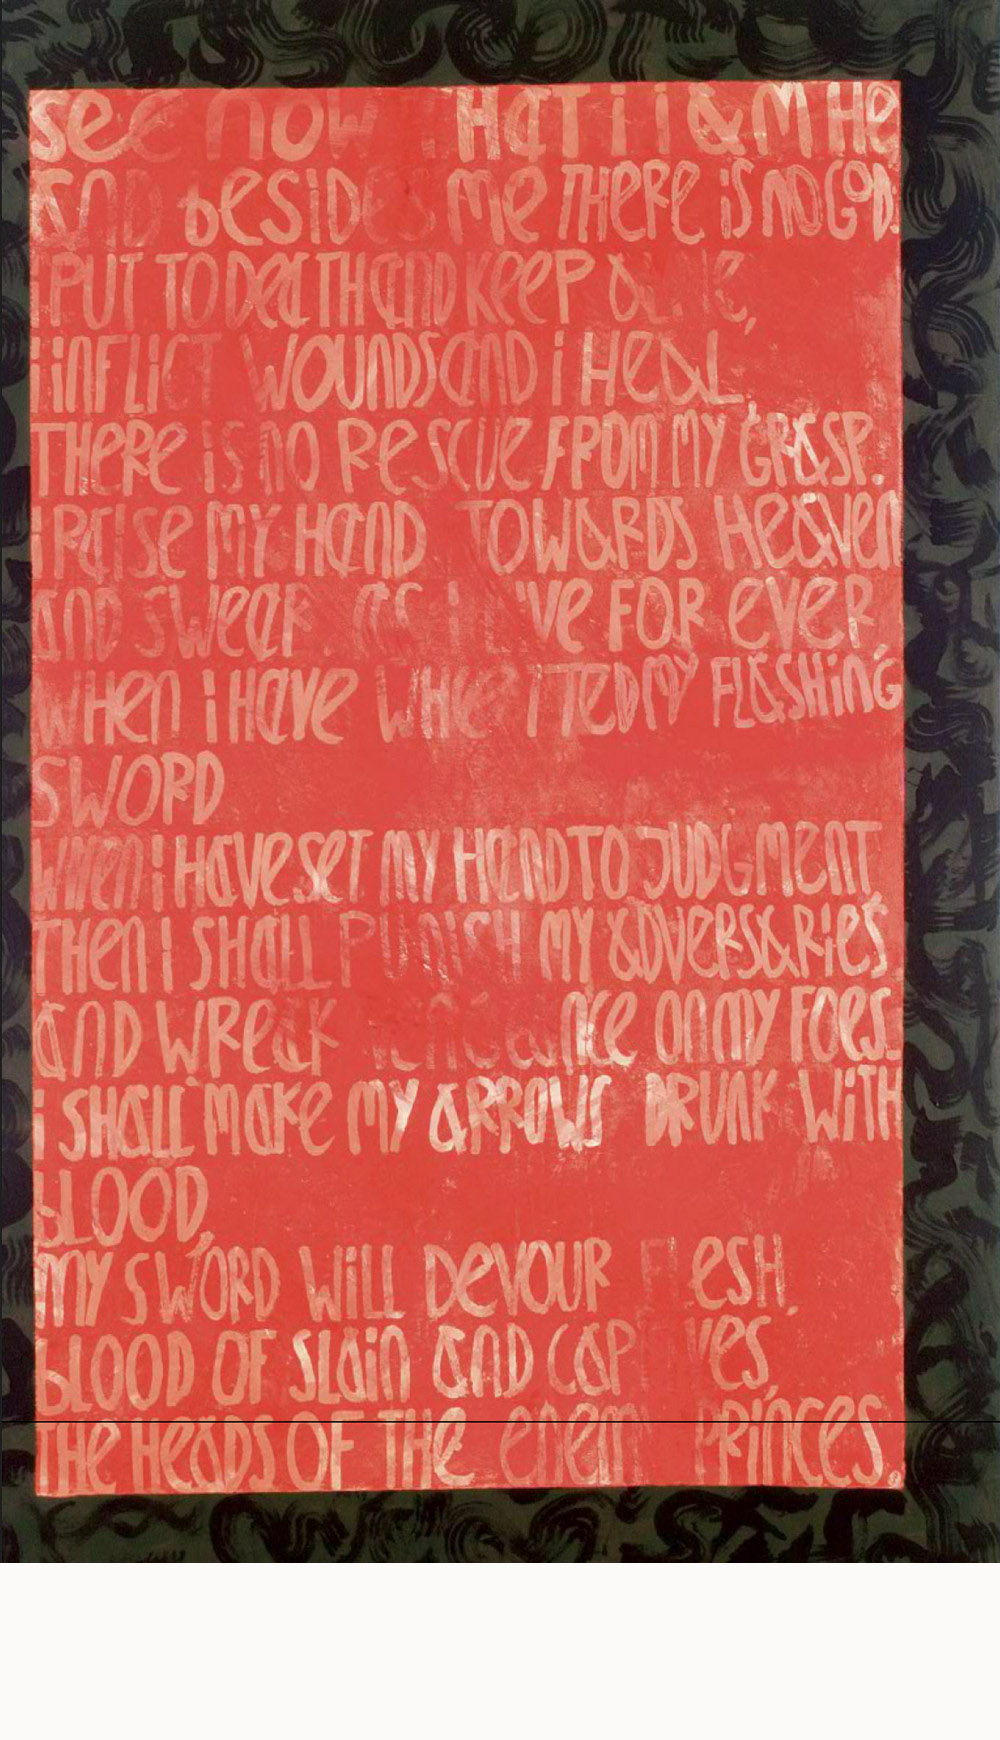 see now THAT i i aM He
aND besiDes Me THeRe iS NO GOD:
i PUT TO DeaTH aND KeeP aLiVe,
i iNFLiCT WOUNDS aND i HeaL.
THeRe iS NO ReSCUe FROM MY GRaSP.
i RaiSe MY HaND TOWaRDS HeaVeN
aND SWeaR aS i LiVe FOR eVeR,
WHeN i HaVe WHeTTeD MY FLaSHiNG
SWORD
WHeN i HaVe SeT MY HaND TO JUDGMeNT,
THeN i SHaLL PUNiSH MY aDVeRSaRieS
aND WReaK VeNGeaNCe ON MY FOeS.
i SHaLL MaKe MY aRROWS DRUNK WiTH
bLOOD,
MY SWORD WiLL DeVOUR FLeSH,
bLOOD OF SLaiN aND CaPTiVeS,
THe HeaDS OF THe eNeMY PRiNCeS.